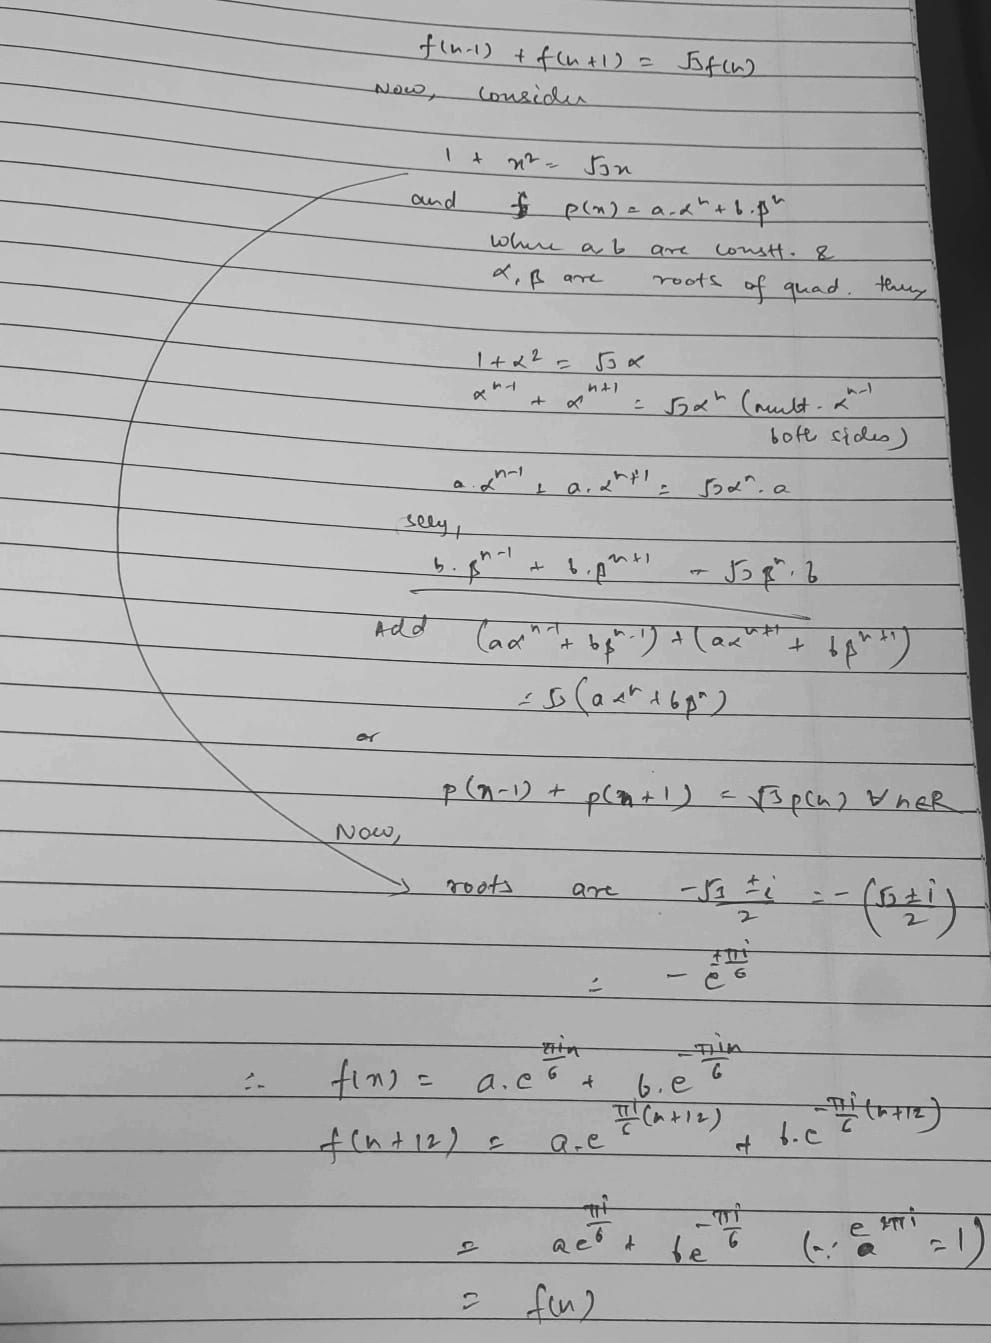 f(n-1) + f(n+1) = √3f(n)
Now, consider
1 + x² = √3x
and p(n) = a.αⁿ + b.βⁿ
where a b are constt. &
α, β are roots of quad. then,
1 + α² = √3 α
αⁿ⁻¹ + αⁿ⁺¹ = √3αⁿ (mult. αⁿ⁻¹
both sides)
a.αⁿ⁻¹ + a.αⁿ⁺¹ = √3αⁿ.a
slly,
b.βⁿ⁻¹ + b.βⁿ⁺¹ = √3βⁿ.b
Add (aαⁿ⁻¹ + bβⁿ⁻¹) + (aαⁿ⁺¹ + bβⁿ⁺¹)
= √3 (aαⁿ + bβⁿ)
or
p(n-1) + p(n+1) = √3p(n) ∀ n∈R
Now,
roots are (-√3 ± i)/2 = -((√3 ± i)/2)
= -e^(±πi/6)
∴ f(n) = a.e^(πin/6) + b.e^(-πin/6)
f(n+12) = a.e^(πi/6 (n+12)) + b.e^(-πi/6 (n+12))
= ae^(πi/6) + be^(-πi/6) (∵ e^(2πi) = 1)
= f(n)